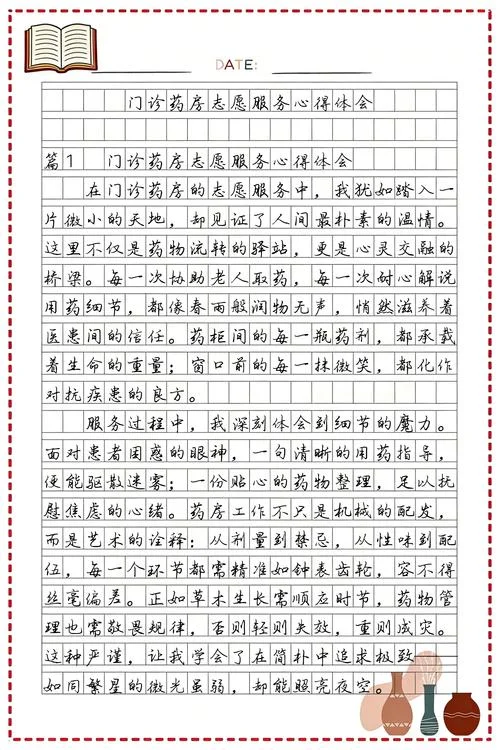 DATE:
门诊药房志愿服务心得体会
篇1 门诊药房志愿服务心得体会
在门诊药房的志愿服务中，我犹如踏入一
片微小的天地，却见证了人间最朴素的温情。
这里不仅是药物流转的驿站，更是心灵交融的
桥梁。每一次协助老人取药，每一次耐心解说
用药细节，都像春雨般润物无声，悄然滋养着
医患间的信任。药柜间的每一瓶药剂，都承载
着生命的重量；窗口前的每一抹微笑，都化作
对抗疾患的良方。
服务过程中，我深刻体会到细节的魔力。
面对患者困惑的眼神，一句清晰的用药指导，
便能驱散迷雾；一份贴心的药物整理，足以抚
慰焦虑的心绪。药房工作不只是机械的配发，
而是艺术的诠释：从剂量到禁忌，从性味到配
伍，每一个环节都需精准如钟表齿轮，容不得
丝毫偏差。正如草木生长需顺应时节，药物管
理也需敬畏规律，否则轻则失效，重则成灾。
这种严谨，让我学会了在简朴中追求极致——
如同繁星的微光虽弱，却能照亮夜空。